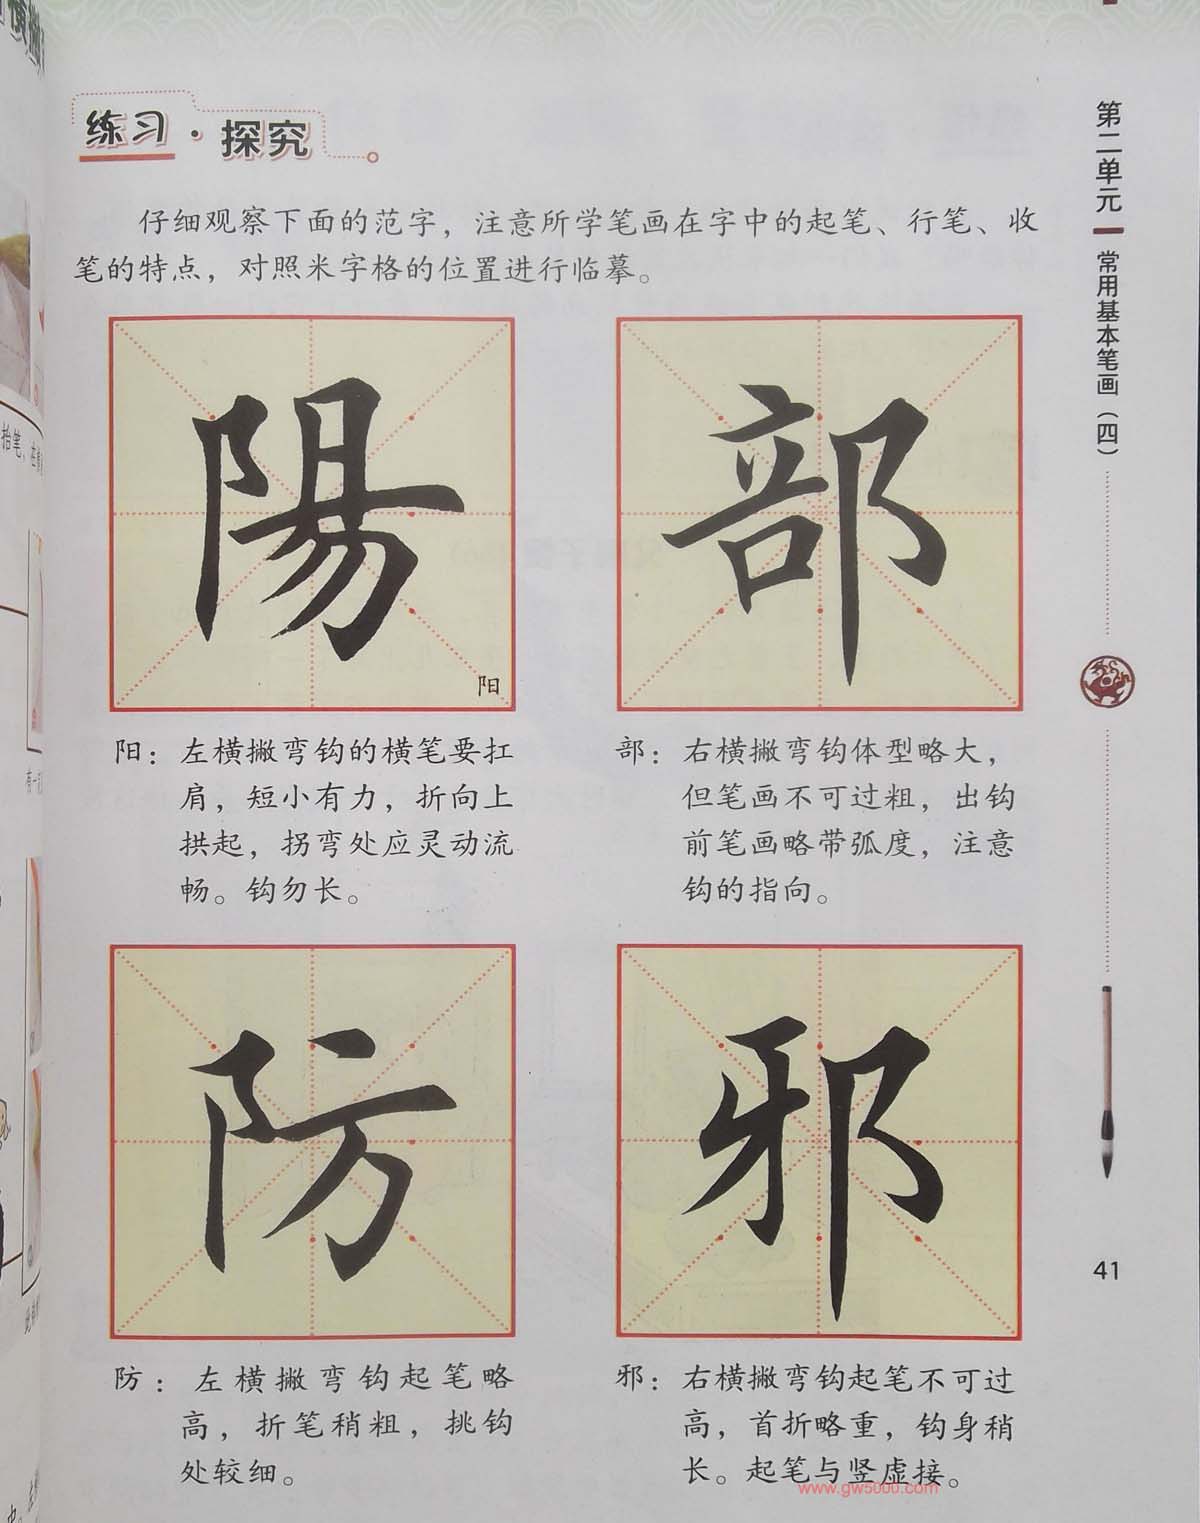 练习·探究
仔细观察下面的范字，注意所学笔画在字中的起笔、行笔、收
笔的特点，对照米字格的位置进行临摹。
陽
阳
部
阳：左横撇弯钩的横笔要扛
肩，短小有力，折向上
拱起，拐弯处应灵动流
畅。钩勿长。
部：右横撇弯钩体型略大，
但笔画不可过粗，出钩
前笔画略带弧度，注意
钩的指向。
防
邪
防：左横撇弯钩起笔略
高，折笔稍粗，挑钩
处较细。
邪：右横撇弯钩起笔不可过
高，首折略重，钩身稍
长。起笔与竖虚接。
www.gw5000.com
第二单元
常用基本笔画（四）
41
抬笔，在
有一